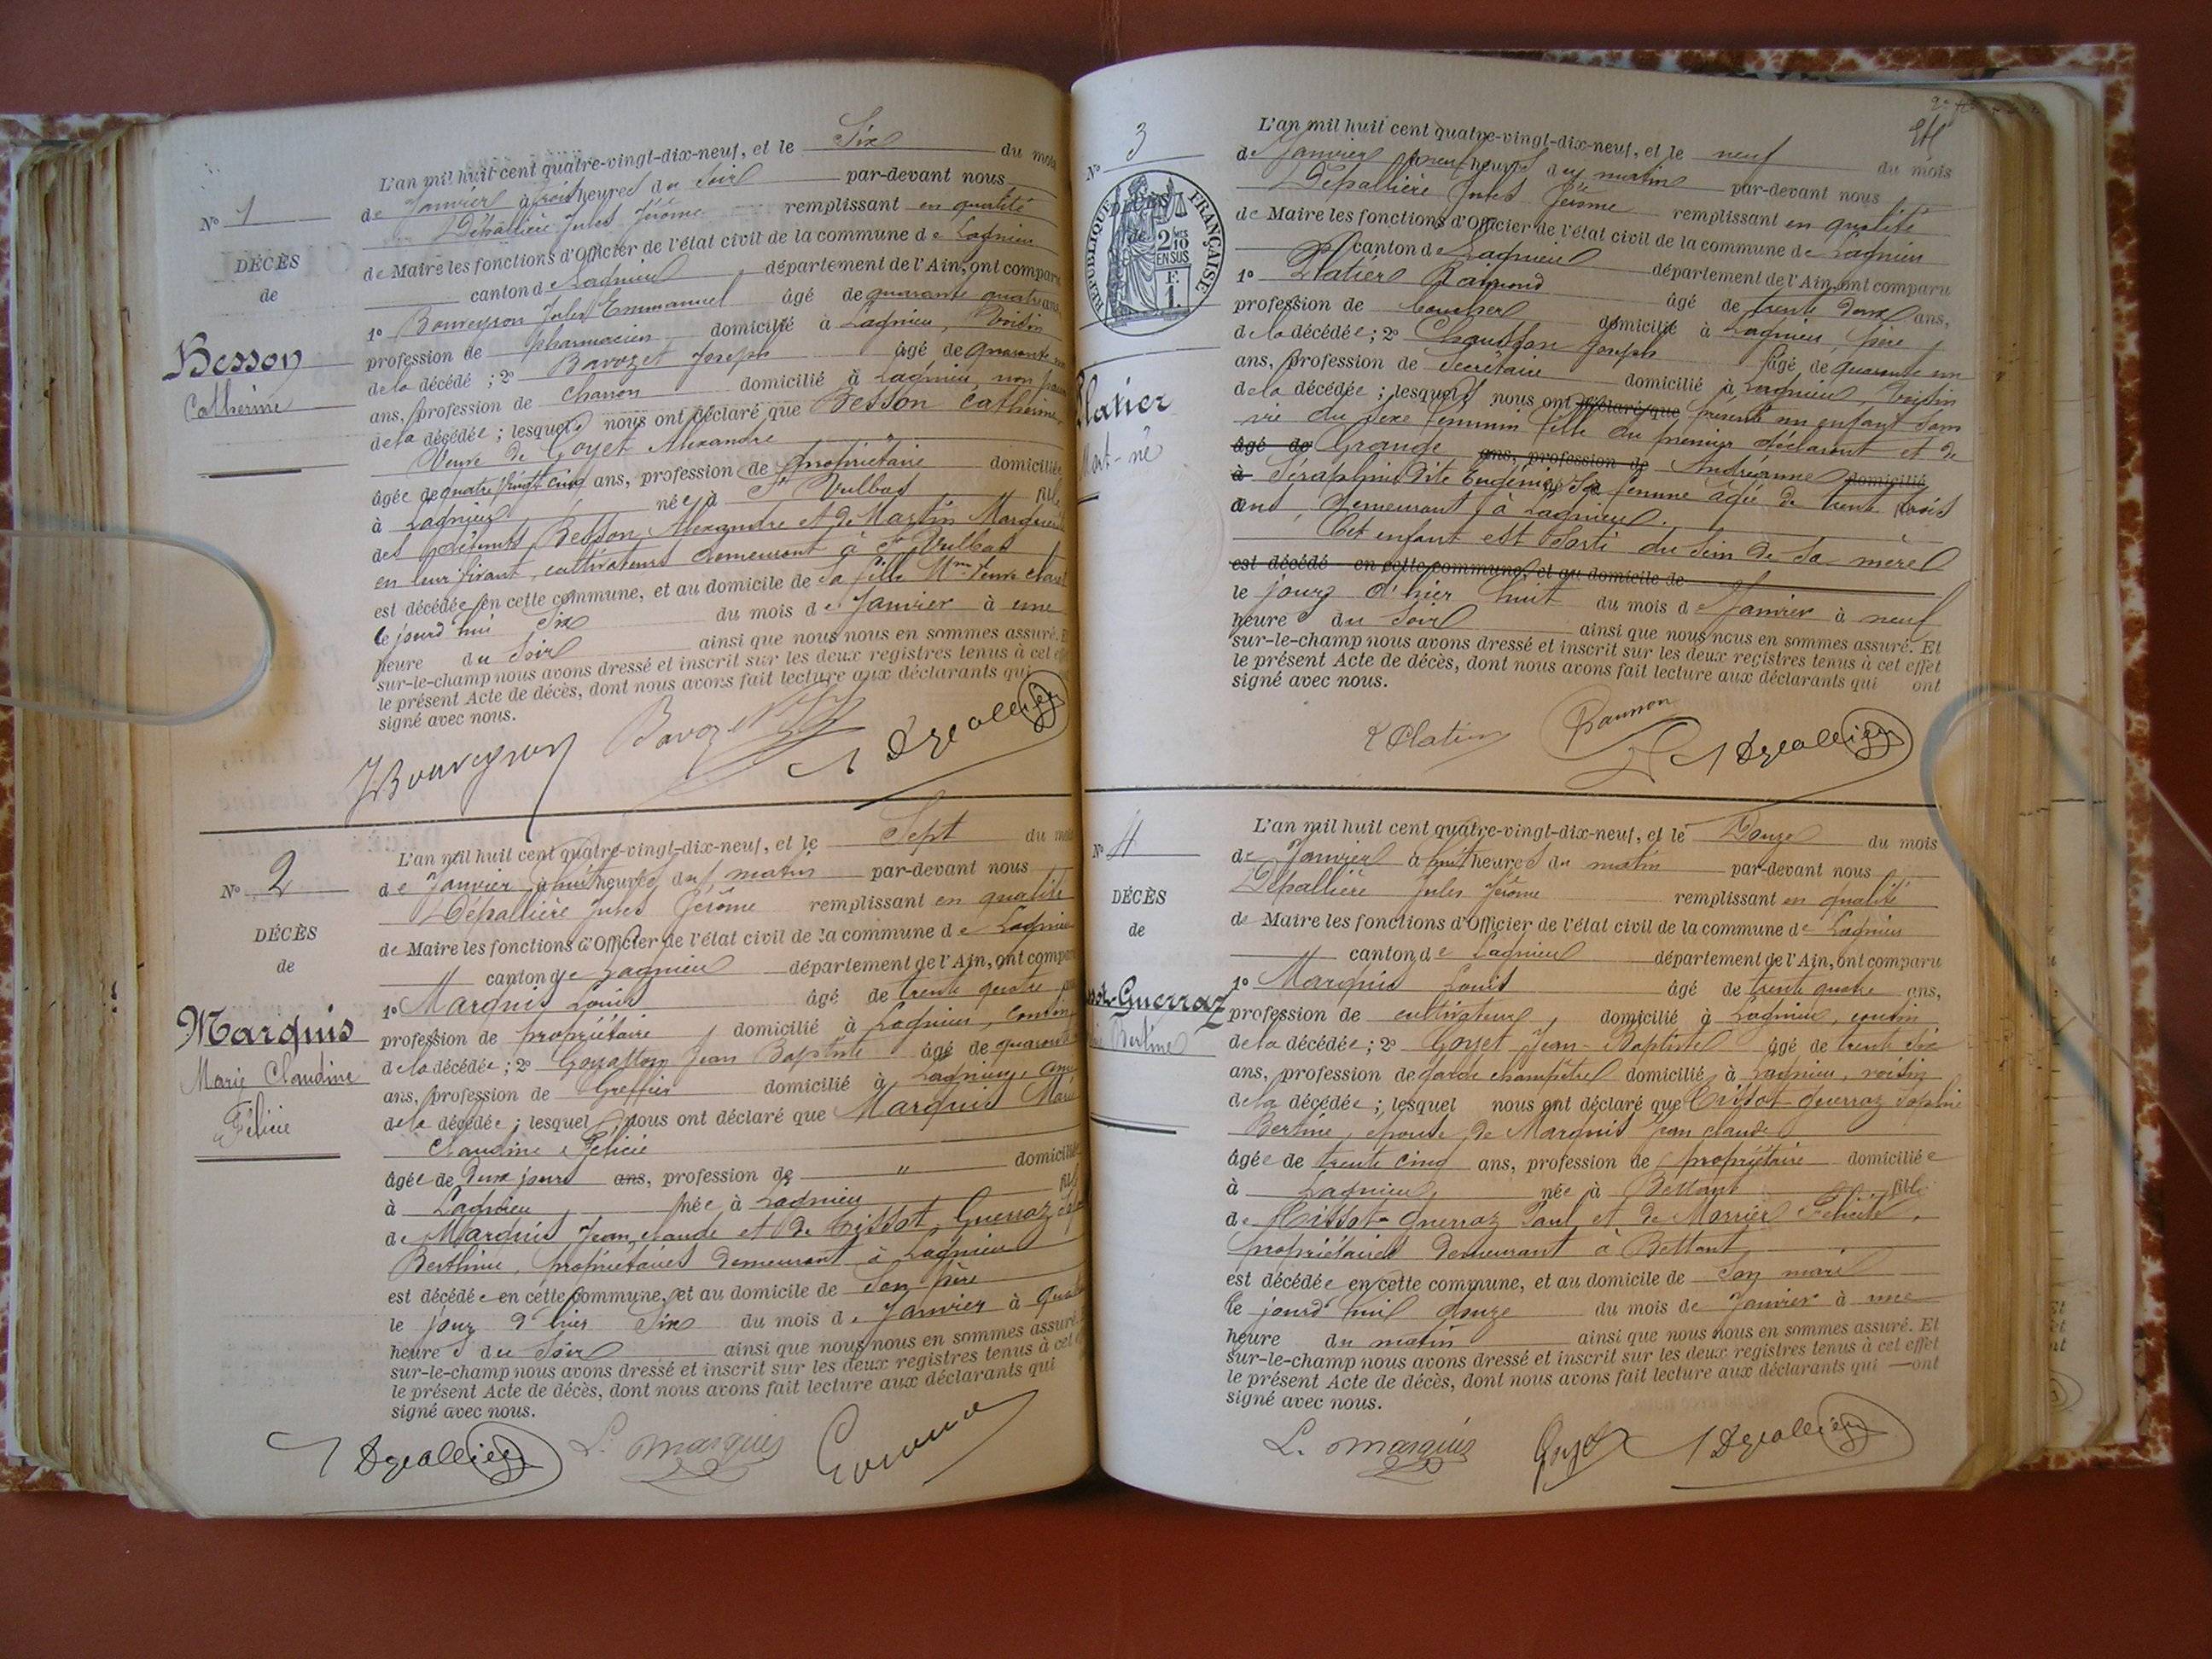 Nº 1
DÉCÈS
de
Besson
Catherine
L'an mil huit cent quatre-vingt-dix-neuf, et le Six du mois
de Janvier à trois heures du soir par-devant nous
Dépallière Jules Jérôme remplissant en qualité
de Maire les fonctions d'Officier de l'état civil de la commune de Lagnieu
canton de Lagnieu, département de l'Ain, ont comparu
1º Bouveyron Jules Emmanuel âgé de quarante quatre ans,
profession de pharmacien domicilié à Lagnieu, voisin
de la décédé ; 2º Bavozet Joseph âgé de quarante
ans, profession de charron domicilié à Lagnieu, non parent
de la décédée ; lesquels nous ont déclaré que Besson Catherine,
Veuve de Goyet Alexandre
âgée de quatre vingt cinq ans, profession de propriétaire domiciliée
à Lagnieu née à St Vulbas fille
des défunts Besson Alexandre et de Martin Marguerite
en leur vivant, cultivateurs demeurant à St Vulbas
est décédée en cette commune, et au domicile de sa fille Mme Veuve
le jourd'hui Six du mois de Janvier à une
heure du soir ainsi que nous nous en sommes assuré. Et
sur-le-champ nous avons dressé et inscrit sur les deux registres tenus à cet effet
le présent Acte de décès, dont nous avons fait lecture aux déclarants qui
signé avec nous.
JBouveyron Bavozet J Dépallière
Nº 2
DÉCÈS
de
Marquis
Marie Claudine
Félicie
L'an mil huit cent quatre-vingt-dix-neuf, et le Sept du mois
de Janvier à huit heures du matin par-devant nous
Dépallière Jules Jérôme remplissant en qualité
de Maire les fonctions d'Officier de l'état civil de la commune de Lagnieu
canton de Lagnieu département de l'Ain, ont comparu
1º Marquis Louis âgé de trente quatre
profession de propriétaire, domicilié à Lagnieu, cousin
de la décédée ; 2º Jean Baptiste âgé de quarante
ans, profession de Greffier domicilié à Lagnieu, ami
de la décédée ; lesquels nous ont déclaré que Marquis Marie
Claudine Félicie
âgée de deux jours ans, profession de " domiciliée
à Lagnieu, née à Lagnieu fille
de Marquis Jean Claude et de Tissot Guerraz
Berthine, propriétaires demeurant à Lagnieu
est décédée en cette commune, et au domicile de son père
le jour d'hier Six du mois de Janvier à quatre
heures du Soir ainsi que nous nous en sommes assuré. Et
sur-le-champ nous avons dressé et inscrit sur les deux registres tenus à cet
le présent Acte de décès, dont nous avons fait lecture aux déclarants qui
signé avec nous.
J Dépallière L. Marquis
Nº 3
RÉPUBLIQUE FRANÇAISE
2 10MES EN SUS
F. 1.
Platier
Mort-né
L'an mil huit cent quatre-vingt-dix-neuf, et le neuf du mois
de Janvier à neuf heures du matin par-devant nous
Dépallière Jules Jérôme remplissant en qualité
de Maire les fonctions d'Officier de l'état civil de la commune de Lagnieu
canton de Lagnieu département de l'Ain, ont comparu
1º Platier Raimond âgé de trente deux ans,
profession de boucher domicilié à Lagnieu, père
de la décédée ; 2º Joseph âgé de quarante un
ans, profession de Secrétaire domicilié à Lagnieu, voisin
de la décédée ; lesquels nous ont déclaré que présenté un enfant sans
vie du sexe féminin fille du premier déclarant et de
âgé de Grange ans, profession de Andréanne domicilié
à Séraphine dite Eugénie, sa femme âgée de trente trois
ans, demeurant à Lagnieu.
Cet enfant est sorti du sein de sa mère
est décédé en cette commune, et au domicile de
le jour d'hier huit du mois de Janvier à neuf
heures du soir ainsi que nous nous en sommes assuré. Et
sur-le-champ nous avons dressé et inscrit sur les deux registres tenus à cet effet
le présent Acte de décès, dont nous avons fait lecture aux déclarants qui ont
signé avec nous.
R Platier J Dépallière
Nº 4
DÉCÈS
de
Guerraz
Bertine
L'an mil huit cent quatre-vingt-dix-neuf, et le Douze du mois
de Janvier à huit heures du matin par-devant nous
Dépallière Jules Jérôme remplissant en qualité
de Maire les fonctions d'Officier de l'état civil de la commune de Lagnieu
canton de Lagnieu département de l'Ain, ont comparu
1º Marquis Louis âgé de trente quatre ans,
profession de cultivateur, domicilié à Lagnieu, cousin
de la décédée ; 2º Goyet Jean-Baptiste âgé de trente six
ans, profession de garde champêtre domicilié à Lagnieu, voisin
de la décédée ; lesquel nous ont déclaré que Tissot-Guerraz Sophie
Bertine, épouse de Marquis Jean Claude
âgée de trente cinq ans, profession de propriétaire domiciliée
à Lagnieu, née à Bettant fille
de Tissot-Guerraz Paul et de Morrier Félicité,
propriétaires demeurant à Bettant
est décédée en cette commune, et au domicile de son mari
le jourd'hui douze du mois de Janvier à une
heure du matin ainsi que nous nous en sommes assuré. Et
sur-le-champ nous avons dressé et inscrit sur les deux registres tenus à cet effet
le présent Acte de décès, dont nous avons fait lecture aux déclarants qui ont
signé avec nous.
L. Marquis Goyet J Dépallière